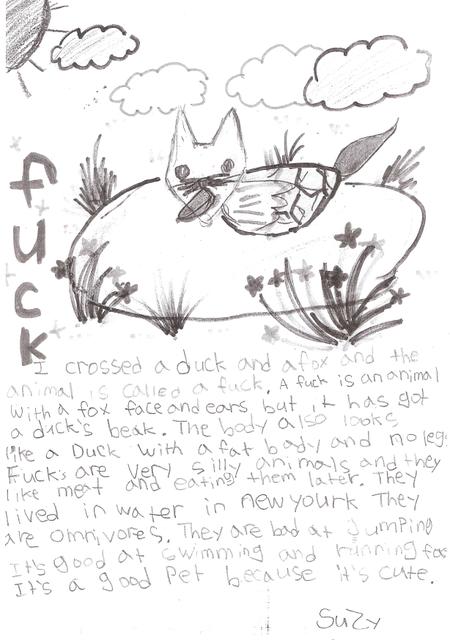 fuck
I crossed a duck and a fox and the
animal is called a fuck. A fuck is an animal
with a fox face and ears but it has got
a duck's beak. The body also looks
like a Duck with a fat body and no legs
Fuck's are very silly animals and they
like meat and eating them later. They
lived in water in new yourk They
are omnivores. They are bad at Jumping
It's good at swimming and running fas
It's a good Pet because it's cute.
SuZy